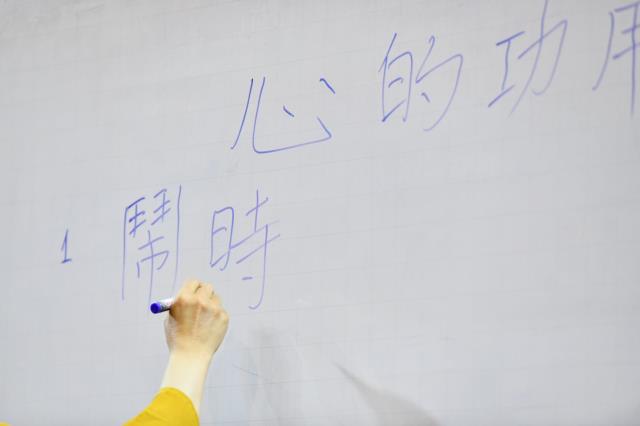 心的功用
1 鬧時